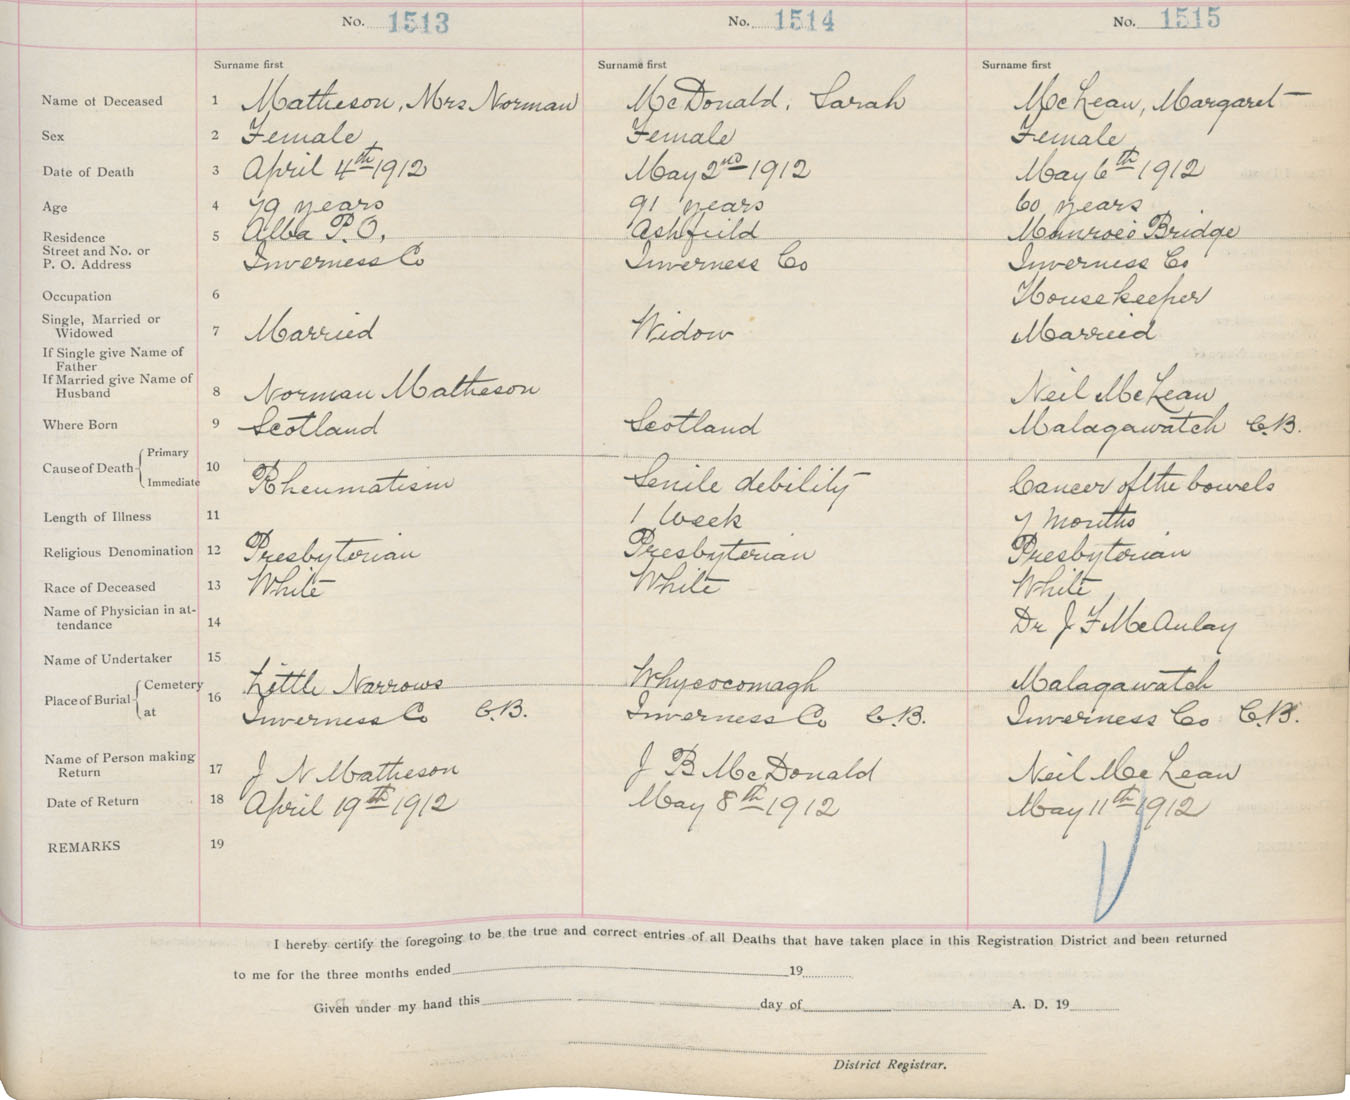 No. 1513 No. 1514 No. 1515
Surname first Surname first Surname first
Name of Deceased 1 Matheson, Mrs Norman McDonald, Sarah McLean, Margaret
Sex 2 Female Female Female
Date of Death 3 April 4th 1912 May 2nd 1912 May 6th 1912
Age 4 79 years 91 years 60 years
Residence 5 Alba P.O. Ashfield Munroe's Bridge
Street and No. or
P. O. Address Inverness Co Inverness Co Inverness Co
Occupation 6 Housekeeper
Single, Married or
Widowed 7 Married Widow Married
If Single give Name of
Father
If Married give Name of
Husband 8 Norman Matheson Neil McLean
Where Born 9 Scotland Scotland Malagawatch C.B.
Cause of Death Primary
Immediate 10 Rheumatism Senile debility Cancer of the bowels
Length of Illness 11 1 Week 7 months
Religious Denomination 12 Presbyterian Presbyterian Presbyterian
Race of Deceased 13 White White White
Name of Physician in at-
tendance 14 Dr J F McAulay
Name of Undertaker 15
Place of Burial Cemetery 16 Little Narrows Whycocomagh Malagawatch
at Inverness Co C.B. Inverness Co C.B. Inverness Co C.B.
Name of Person making
Return 17 J N Matheson J B McDonald Neil McLean
Date of Return 18 April 19th 1912 May 8th 1912 May 11th 1912
REMARKS 19
I hereby certify the foregoing to be the true and correct entries of all Deaths that have taken place in this Registration District and been returned
to me for the three months ended 19
Given under my hand this day of A. D. 19
District Registrar.